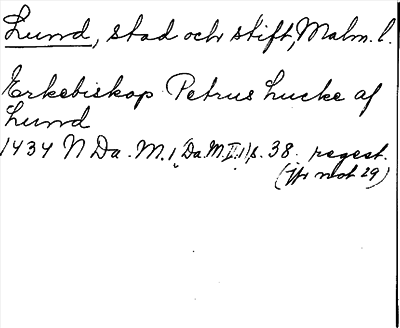 Lund, stad och stift, Malm. l.
Erkebiskop Petrus Lucke af
Lund
1434 N Da. M. 1 (Da. M. II. 1) s. 38. regest.
(Jfr not 29)